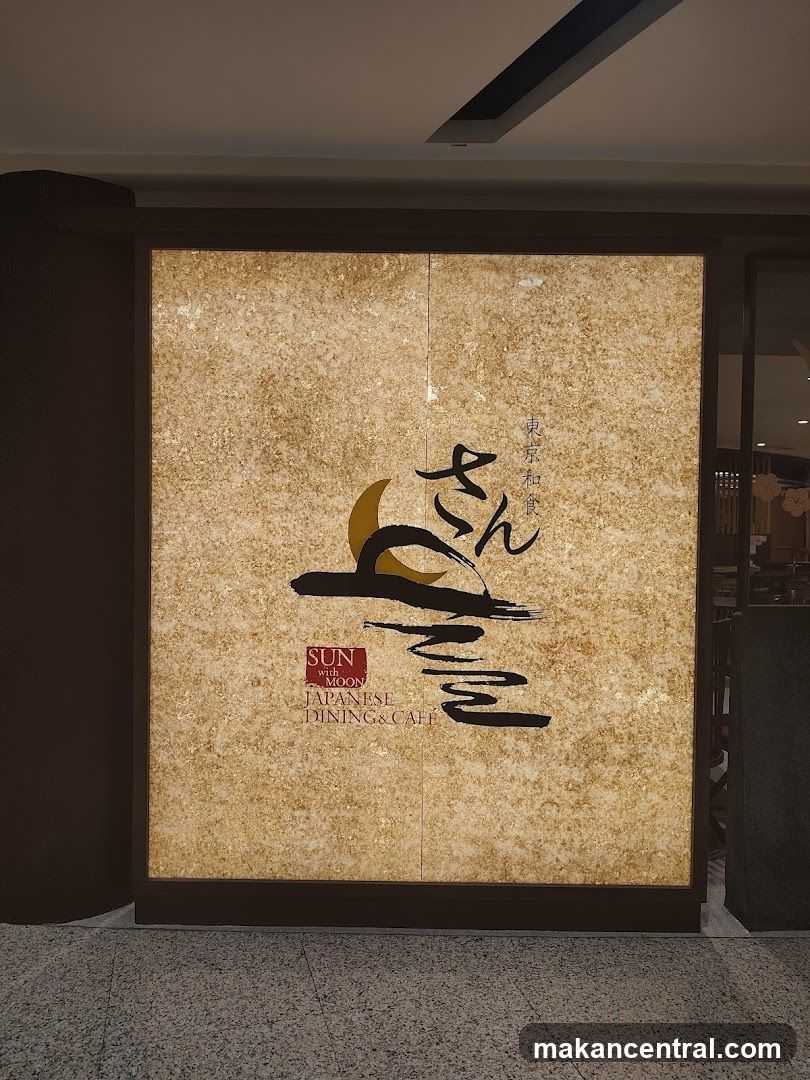 東京和食
さん
SUN
with
MOON
JAPANESE
DINING & CAFE
makancentral.com